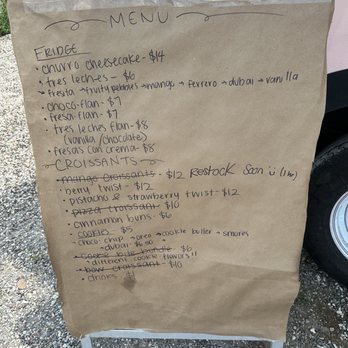 MENU
FRIDGE
• churro cheesecake - $14
• tres leches - $6
↳ fresta → fruity pebbles → mango → ferrero → dubai → vanilla
• choco-flan - $7
• fresa-flan - $7
• tres leches flan - $8
(vanilla/chocolate)
• fresas con crema - $8
CROISSANTS
• mango croissants - $12 Restock Soon
• berry twist - $12
• pistacho & strawberry twist - $12
• pizza croissant - $10
• cinnamon buns - $6
• cookies - $5
choco chip → oreo → cookie butter → smores
→ dubai - $6.50
• cookie bite bundle $6
different cookie flavors!!
• baw croissant - $10
• drinks $1